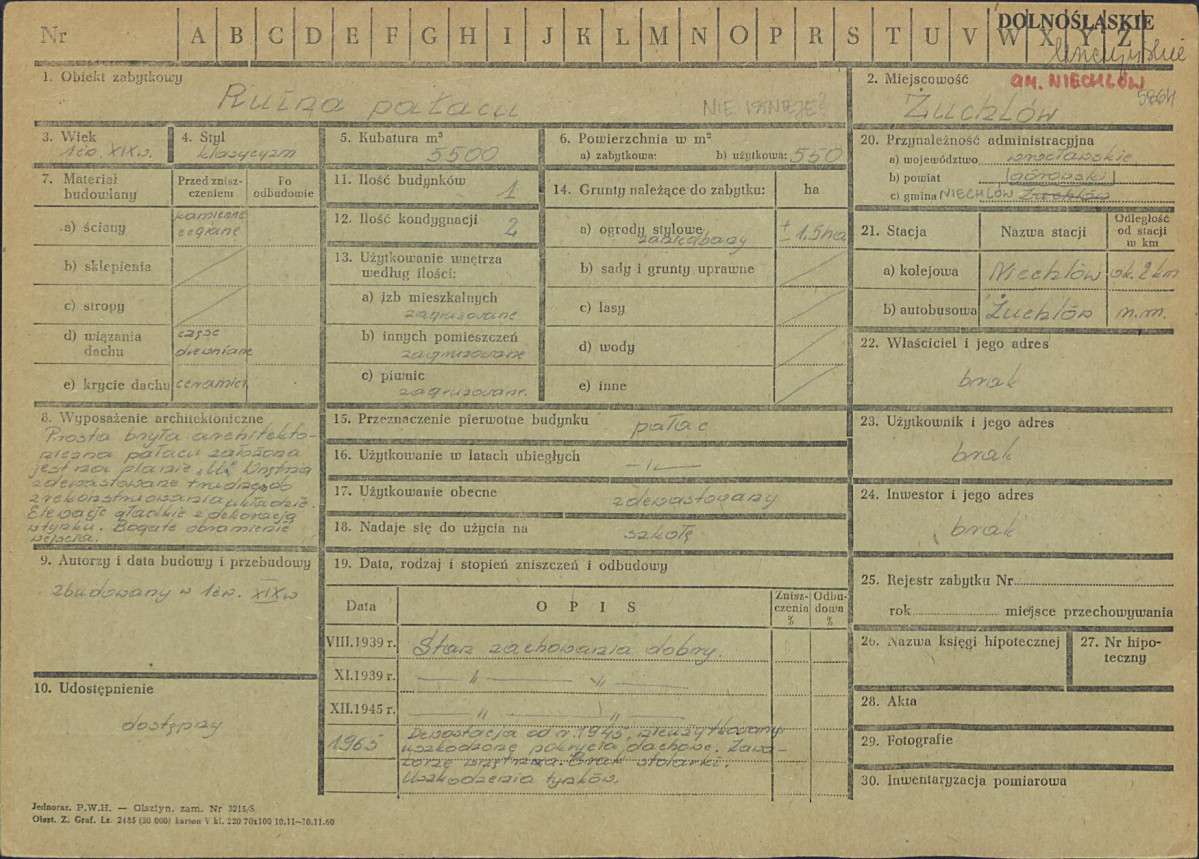 Nr A B C D E F G H I J K L M N O P R S T U V W X Y Z
DOLNOŚLĄSKIE
1. Obiekt zabytkowy
Ruina pałacu NIE ISTNIEJE?
2. Miejscowość GM. NIECHLÓW
Żuchlów 5864
3. Wiek
1 ćw. XIX w.
4. Styl
klasycyzm
5. Kubatura m³
5500
6. Powierzchnia w m²
a) zabytkowa: b) użytkowa: 550
7. Materiał budowlany
Przed zniszczeniem
Po odbudowie
a) ściany kamienne ceglane
b) sklepienia
c) stropy
d) wiązania dachu częśc drewniane
e) krycie dachu ceramicz.
8. Wyposażenie architektoniczne
Prosta bryła architekto-
niczna pałacu założona
jest na planie „U”. Wnętrza
zdewastowane trudne do
zrekonstruowania układzie.
Elewacje gładkie z dekoracją
w tynku. Bogate obramienie
wejścia.
9. Autorzy i data budowy i przebudowy
zbudowany w 1 ćw. XIX w
10. Udostępnienie
dostępny
11. Ilość budynków
1
12. Ilość kondygnacji
2
13. Użytkowanie wnętrza według ilości:
a) izb mieszkalnych
zagruzowane
b) innych pomieszczeń
zagruzowane
c) piwnic
zagruzowane.
14. Grunty należące do zabytku: ha
a) ogrody stylowe zaniedbany ± 1.5 ha
b) sady i grunty uprawne
c) lasy
d) wody
e) inne
15. Przeznaczenie pierwotne budynku pałac
16. Użytkowanie w latach ubiegłych —„—
17. Użytkowanie obecne zdewastowany
18. Nadaje się do użycia na szkołę
19. Data, rodzaj i stopień zniszczeń i odbudowy
Data OPIS Zniszczenia % Odbudowa %
VIII.1939 r. Stan zachowania dobry.
XI.1939 r. —„— —„—
XII.1945 r. —„— —„—
1965 Dewastacja od r. 1945, nieużytkowany
uszkodzone pokrycie dachowe. Zawa-
lone wnętrza. Brak stolarki.
Uszkodzenia tynków.
20. Przynależność administracyjna
a) województwo wrocławskie
b) powiat górowski
c) gmina NIECHLÓW Żuchlów
21. Stacja Nazwa stacji Odległość od stacji w km
a) kolejowa Niechlów ok. 2 km
b) autobusowa Żuchlów n.m.
22. Właściciel i jego adres
brak
23. Użytkownik i jego adres
brak
24. Inwestor i jego adres
brak
25. Rejestr zabytku Nr
rok miejsce przechowywania
26. Nazwa księgi hipotecznej
27. Nr hipoteczny
28. Akta
29. Fotografie
30. Inwentaryzacja pomiarowa
Jednoraz. P.W.H. — Olsztyn, zam. Nr 3215/S
Olszt. Z. Graf. Lz. 2485 (30 000) karton V kl. 220 70x100 10.11—10.11.60